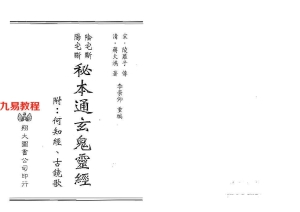 宋·陵萬子 傳
清·蔣大鴻 著
李崇仰 重編
陰宅斷
陽宅斷
秘本通玄鬼靈經
附:何知經、古鏡歌
翔大圖書公司印行
九易教程